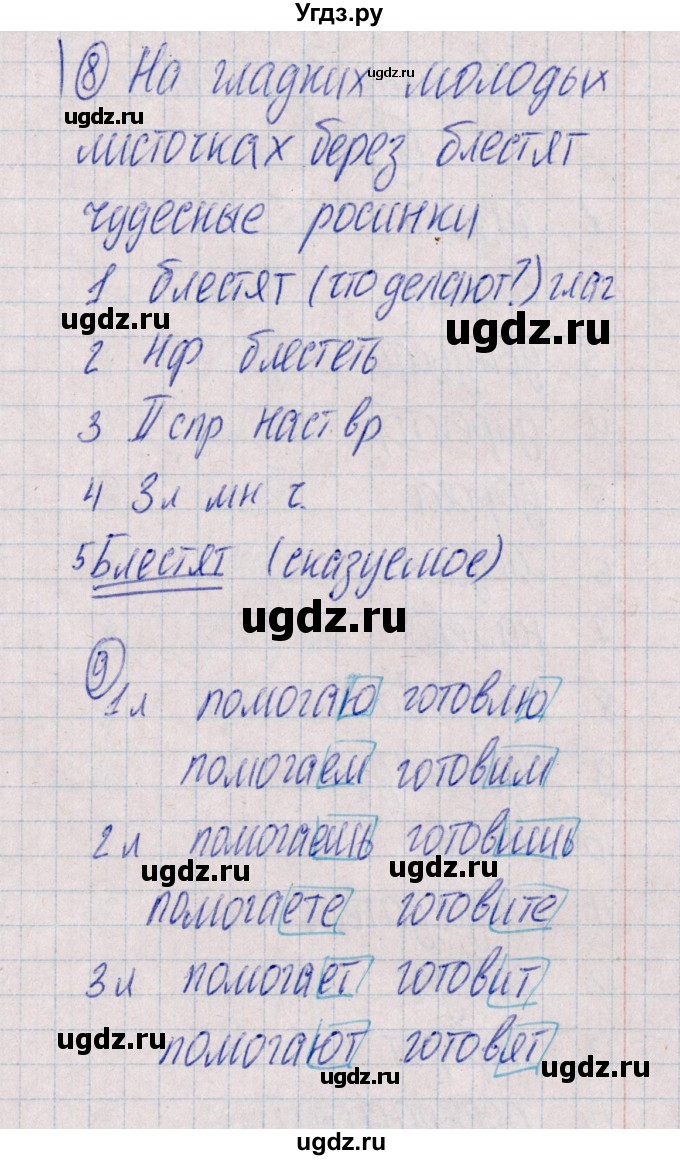 Угдз.ру
8 На гладких молодых
ugdz.ru
ugdz.ru
листочках берез блестят
чудесные росинки
ugdz.ru
1 блестят (что делают?) глаг
ugdz.ru
ugdz.ru
2 нф блестеть
3 II спр наст вр
4 3л мн ч.
5 Блестят (сказуемое)
ugdz.ru
9
1л помогаю готовлю
помогаем готовим
2л помогаешь готовишь
ugdz.ru
ugdz.ru
помогаете готовите
3л помогает готовит
ugdz.ru
помогают готовят
ugdz.ru
ugdz.ru
ugdz.ru